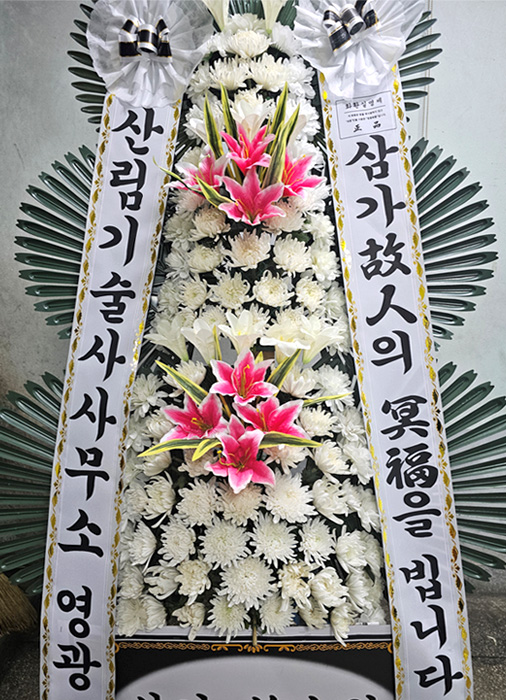 산림기술사사무소 영광
삼가故人의 冥福을 빕니다
화환실명제
正品